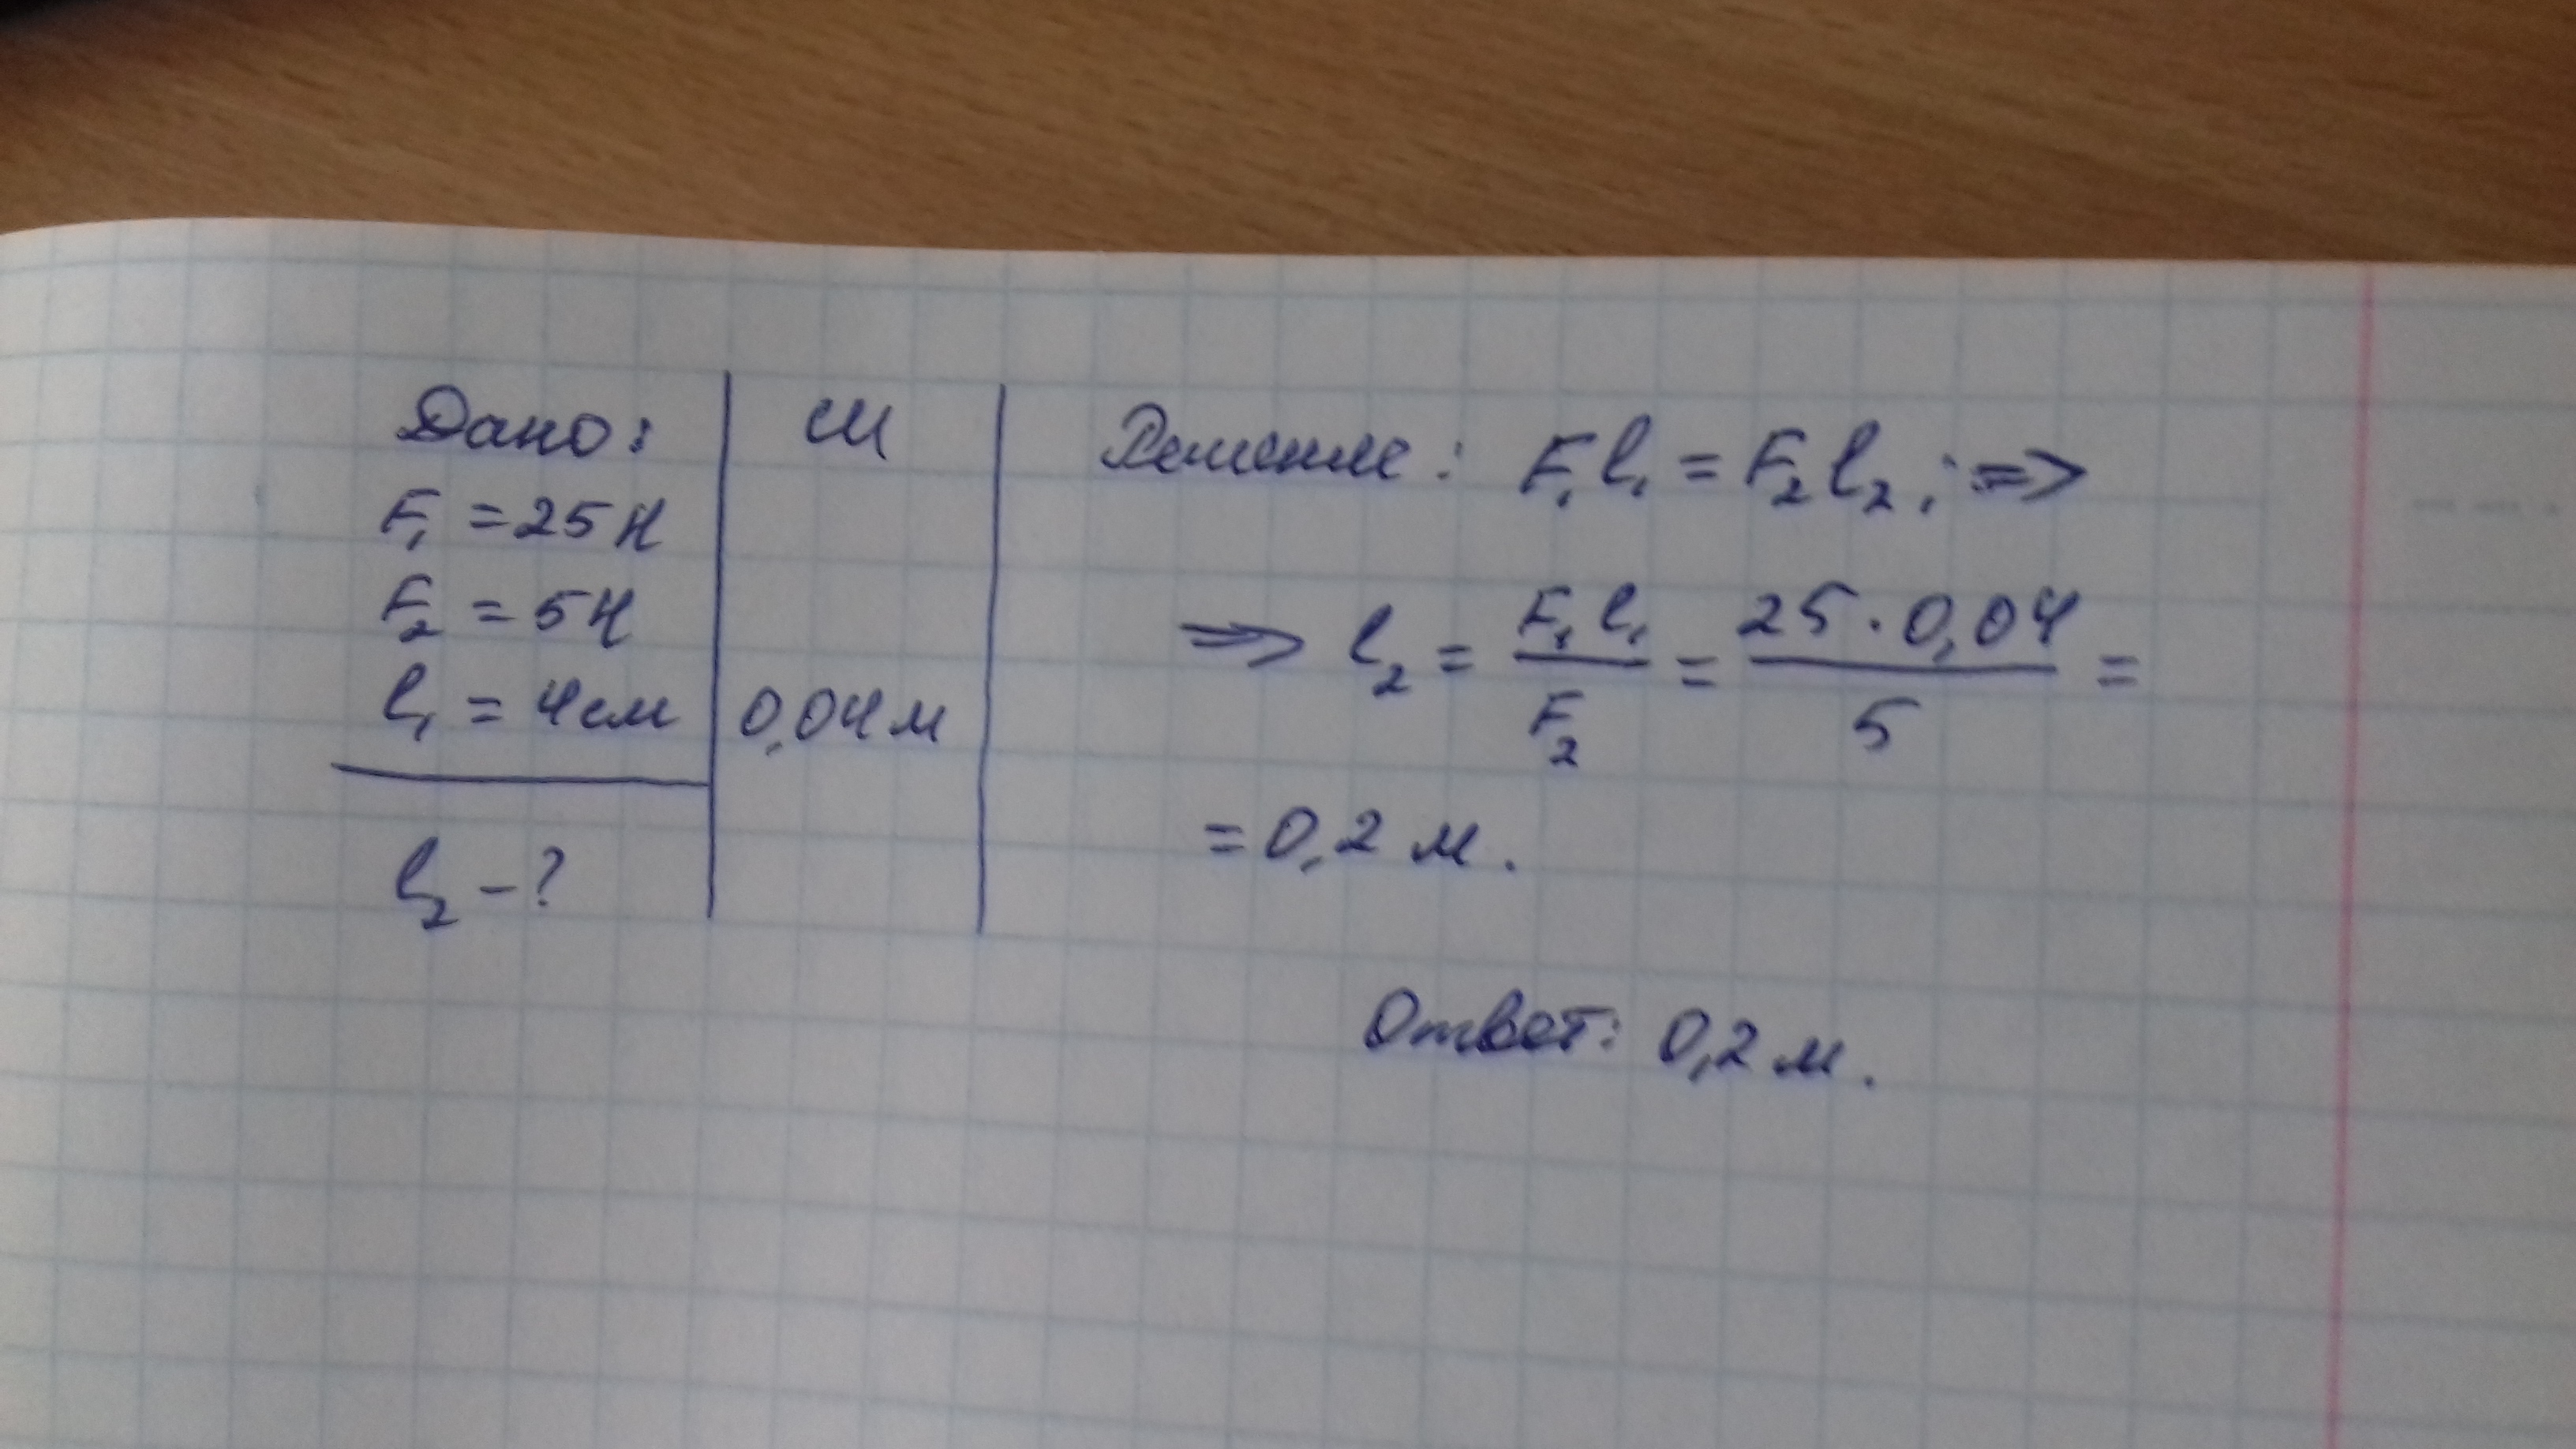 Дано:
F₁ = 25 Н
F₂ = 5 Н
l₁ = 4 см
l₂ - ?
СИ
0,04 м
Решение: F₁l₁ = F₂l₂; =>
=> l₂ = F₁l₁ / F₂ = 25 · 0,04 / 5 =
= 0,2 м.
Ответ: 0,2 м.